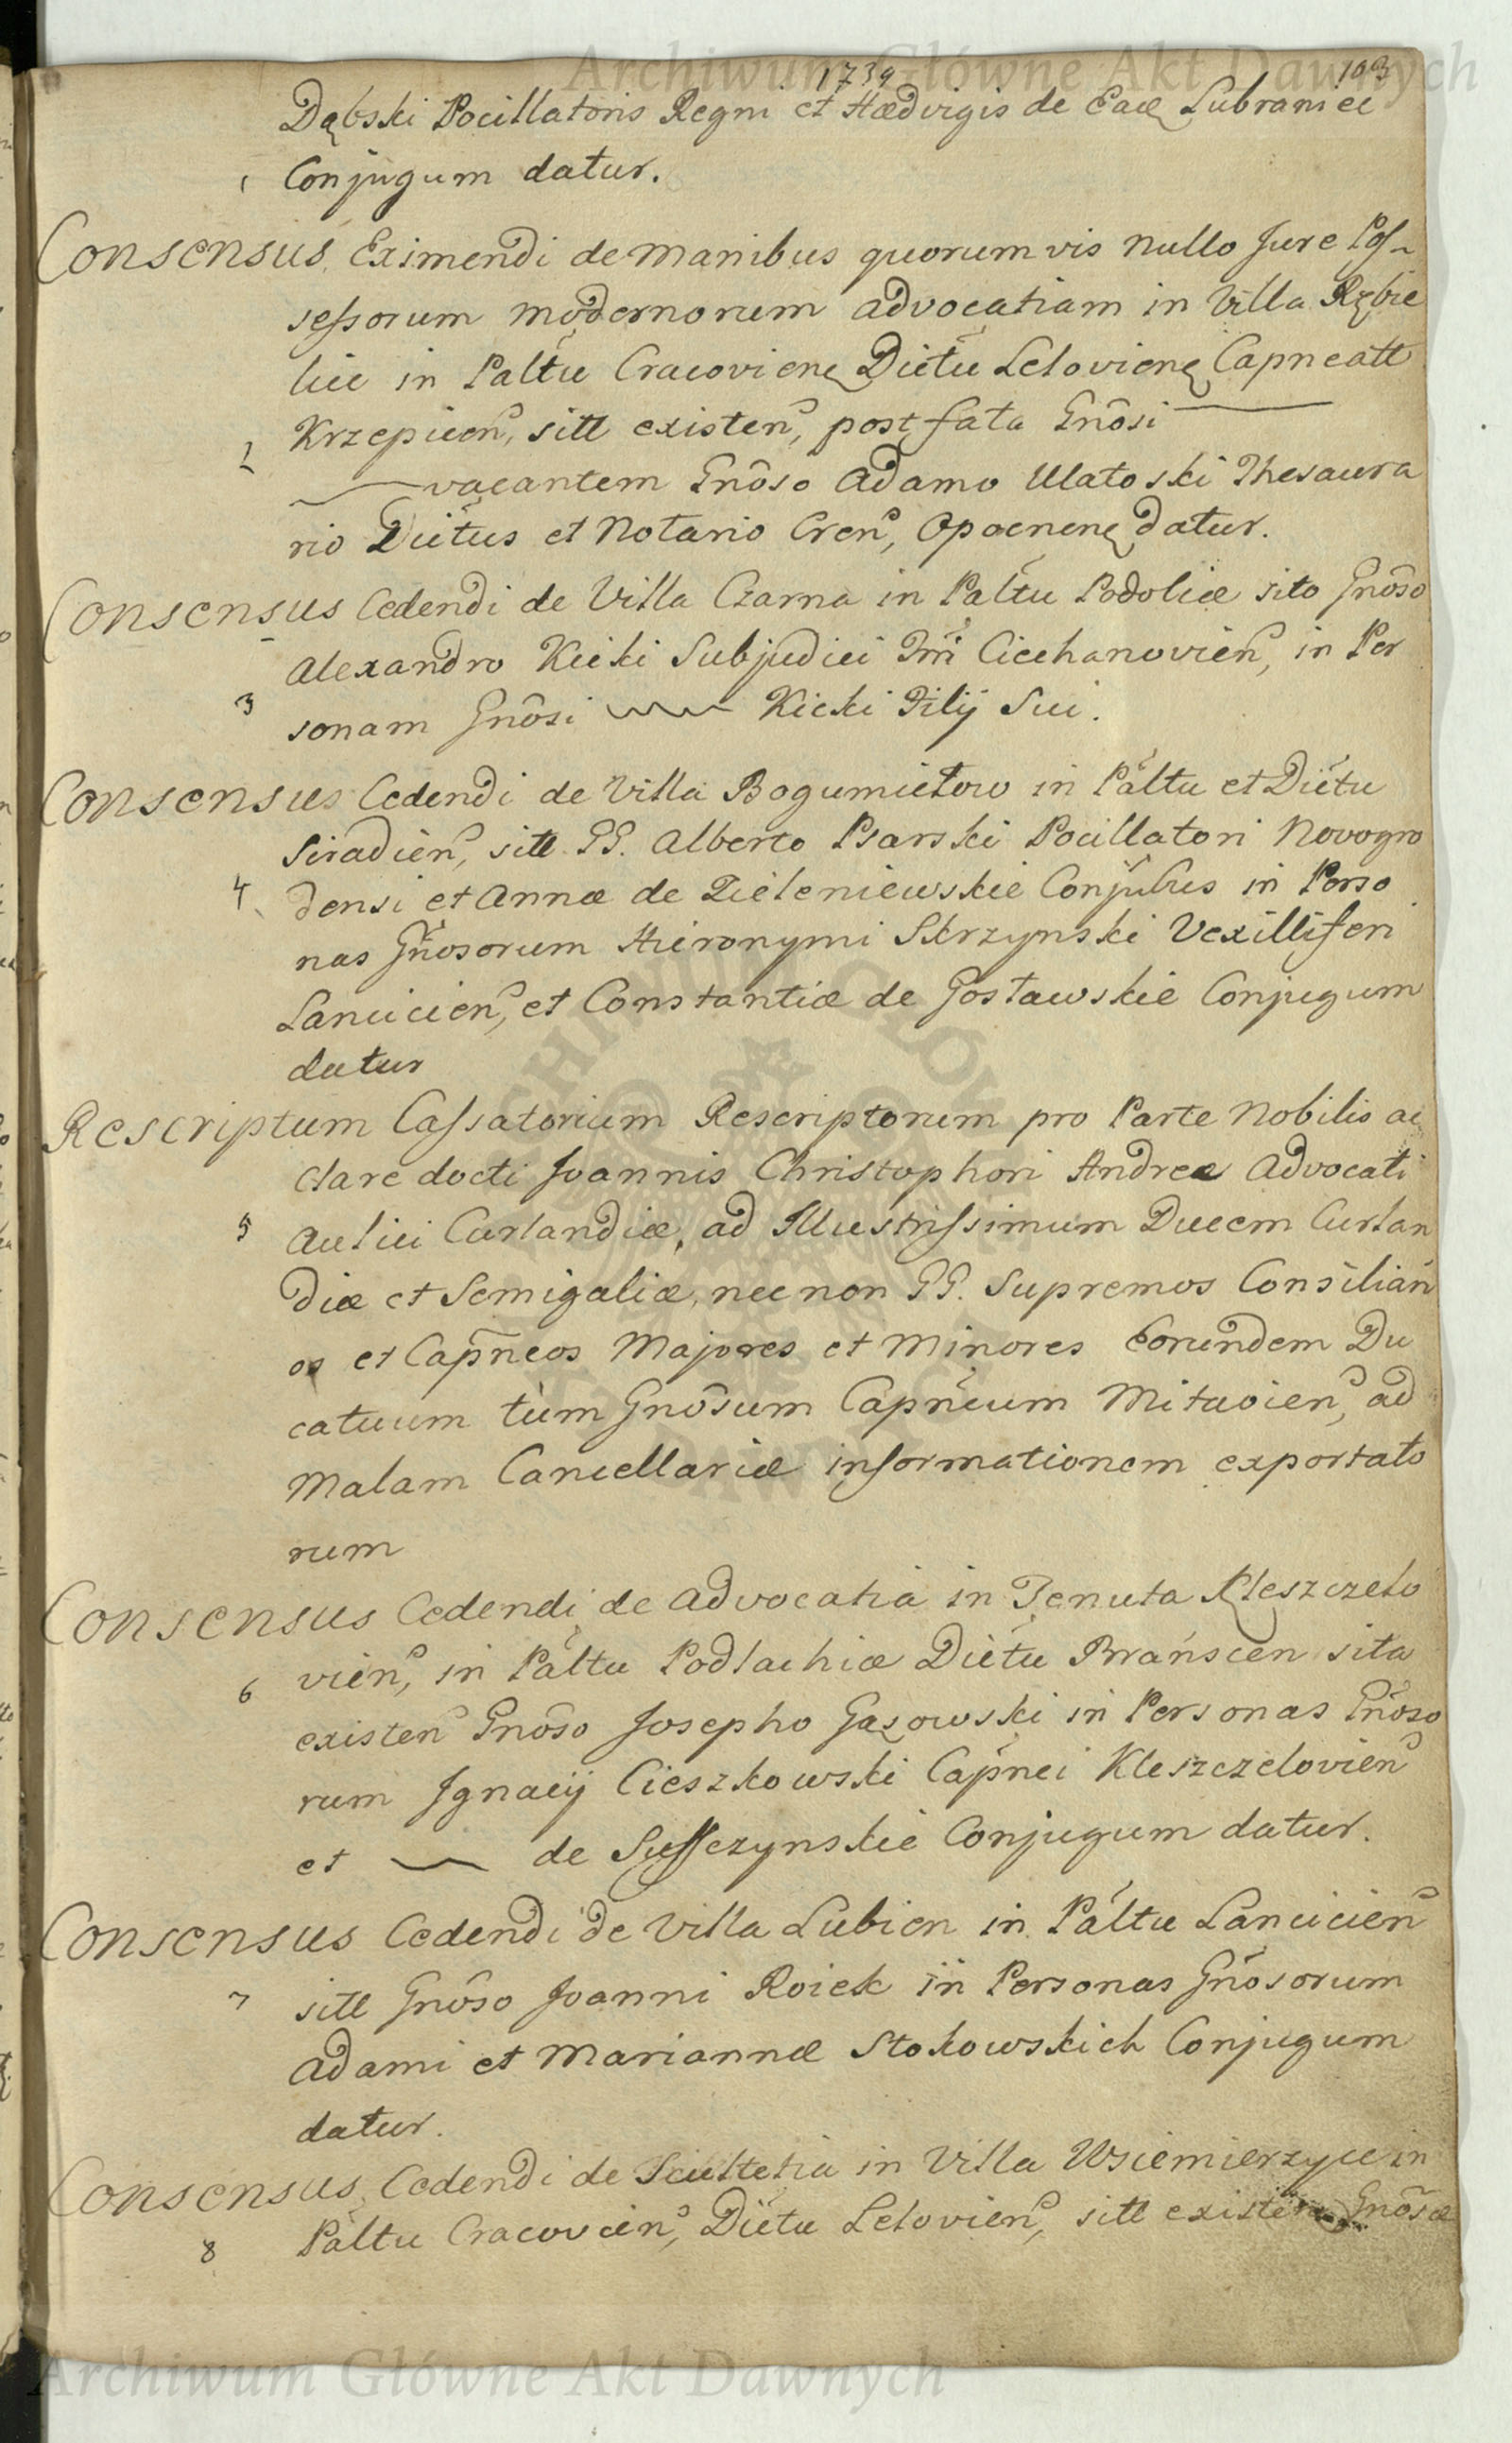 Archiwum Główne Akt Dawnych
1739 103
Dąbski Pocillatoris Regni et Hædvigis de Eadȩ Lubraniec
1 Conjugum datur.
Consensus Eximendi de manibus quorumvis nullo Jure Pos-
sessorum modernorum advocatiam in Villa Rębie
lice in Paltu Cracovienȩ Dictu Leloviene Capneatt
2 Krzepicen, sitt existen, post fata Gnosi
vacantem Gnoso Adamo Ulatoski Thesaura
rio Dictus et Notario Cren, Opocnene datur.
Consensus Cedendi de Villa Czarna in Paltu Podoliæ sito Gnoso
Alexandro Kicki Subjudici Trri Ciechanovien, in Per
3 sonam Gnosi Kicki Filij Sui.
Consensus Cedendi de Villa Bogumiełow in Paltu et Dictu
Siradien, sitt GG. Alberto Psarski Pocillatori Novogro
4 densi et Annæ de Zieleniewskie Conjubus in Perso
nas Gnosorum Hieronymi Skrzynski Vexilliferi
Lancicien, et Constantiæ de Gosławskie Conjugum
datur
Rescriptum Cassatorium Rescriptorum pro Parte Nobilis ac
clare docti Joannis Christophori Andreæ Advocati
5 Aulici Curlandiæ, ad Illustrissimum Ducem Curlan
diæ et Semigaliæ, necnon GG. Supremos Consiliari
os et Capneos Majores et Minores Eorundem Du
catuum tum Gnosum Capneum Mitavien, ad
Malam Cancellariæ informationem exportato
rum
Consensus Cedendi de Advocatia in Tenuta Kleszczelo
6 vien, in Paltu Podlachiæ Dictu Branscen sita
existen Gnoso Josepho Gąsowski in Personas Gnoso
rum Ignacij Cieszkowski Capnei Kleszczelovien
et de Suffczynskie Conjugum datur.
Consensus Cedendi de Villa Lubien in Paltu Lancicien
7 sitt Gnoso Joanni Roiek in Personas Gnosorum
Adami et Mariannæ Stokowskich Conjugum
datur.
Consensus Cedendi de Scultetia in Villa Wsiemierzyce in
8 Paltu Cracovien, Dictu Lelovien, sitt existen Gnosæ
Archiwum Główne Akt Dawnych